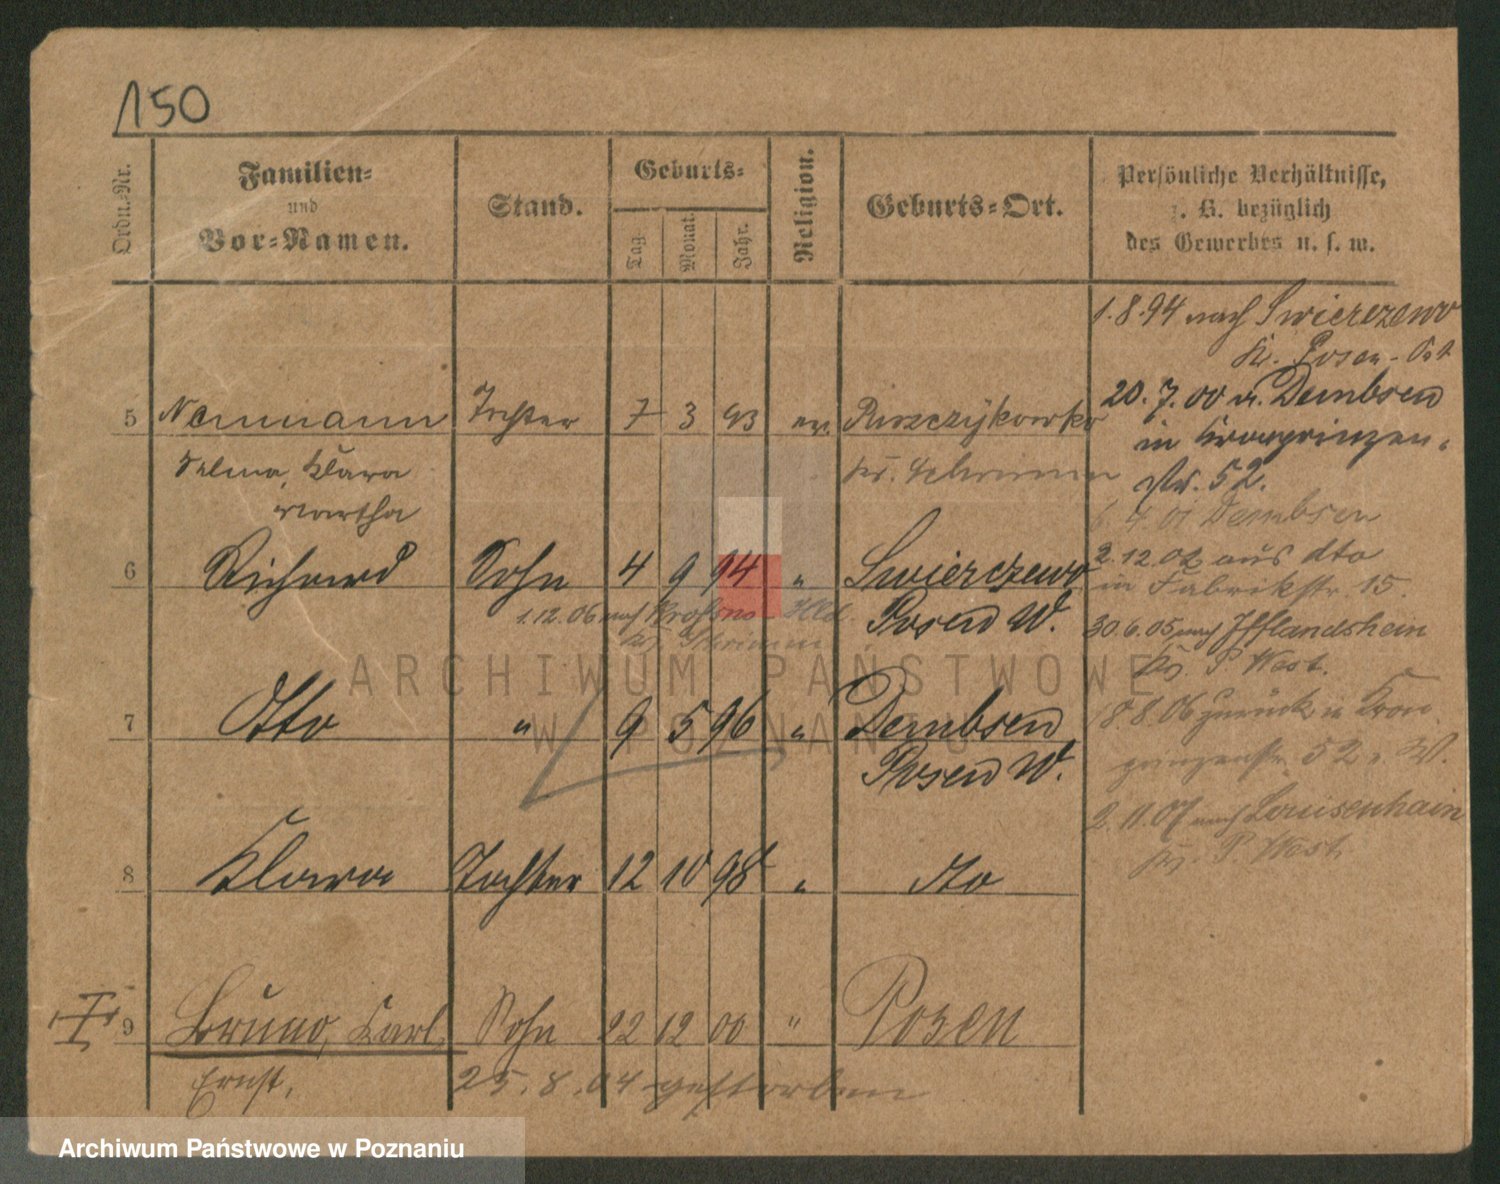 150
Ordn.-Nr.
Familien-
und
Vor-Namen.
Stand.
Geburts-
Tag.
Monat.
Jahr.
Religion.
Geburts-Ort.
Persönliche Verhältnisse,
z. B. bezüglich
des Gewerbes u. s. w.
1.8.94 nach Swierczewo
Kr. Posen-Ost
20.7.00 v. Dembsen
in Kronprinzen-
str. 52.
4. 01 Dembsen
2.12.02 aus dto
in Fabrikstr. 15.
30.6.05 nach
Kr. P. West.
8.8.06 zurück in Kron
prinzenstr. 52
2.11.07 nach Louisenhain
Kr. P. West
5 Naumann Tochter 7 3 93 ev.
Selma, Klara Kr. Schrimm
Martha
6 Richard Sohn 4 9 94 " Swierczewo
1.12.06 nach Krossno Hld. Posen W.
Kr. Schrimm
7 Otto " 9 5 96 " Dembsen
Posen W.
8 Klara Tochter 12 10 98 " dto
9 Bruno, Karl, Sohn 22 12 00 " Posen
Ernst, 25.8.04 gestorben
ARCHIWUM PAŃSTWOWE
W POZNANIU
Archiwum Państwowe w Poznaniu